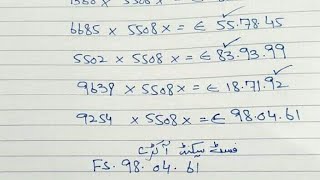 6685 x 5508 x = € 55.78.45
5502 x 5508 x = € 83.93.99
9639 x 5508 x = € 18.71.92
9254 x 5508 x = € 98.04.61
فسٹ سیکنڈ آکڑے
FS. 98. 04. 61